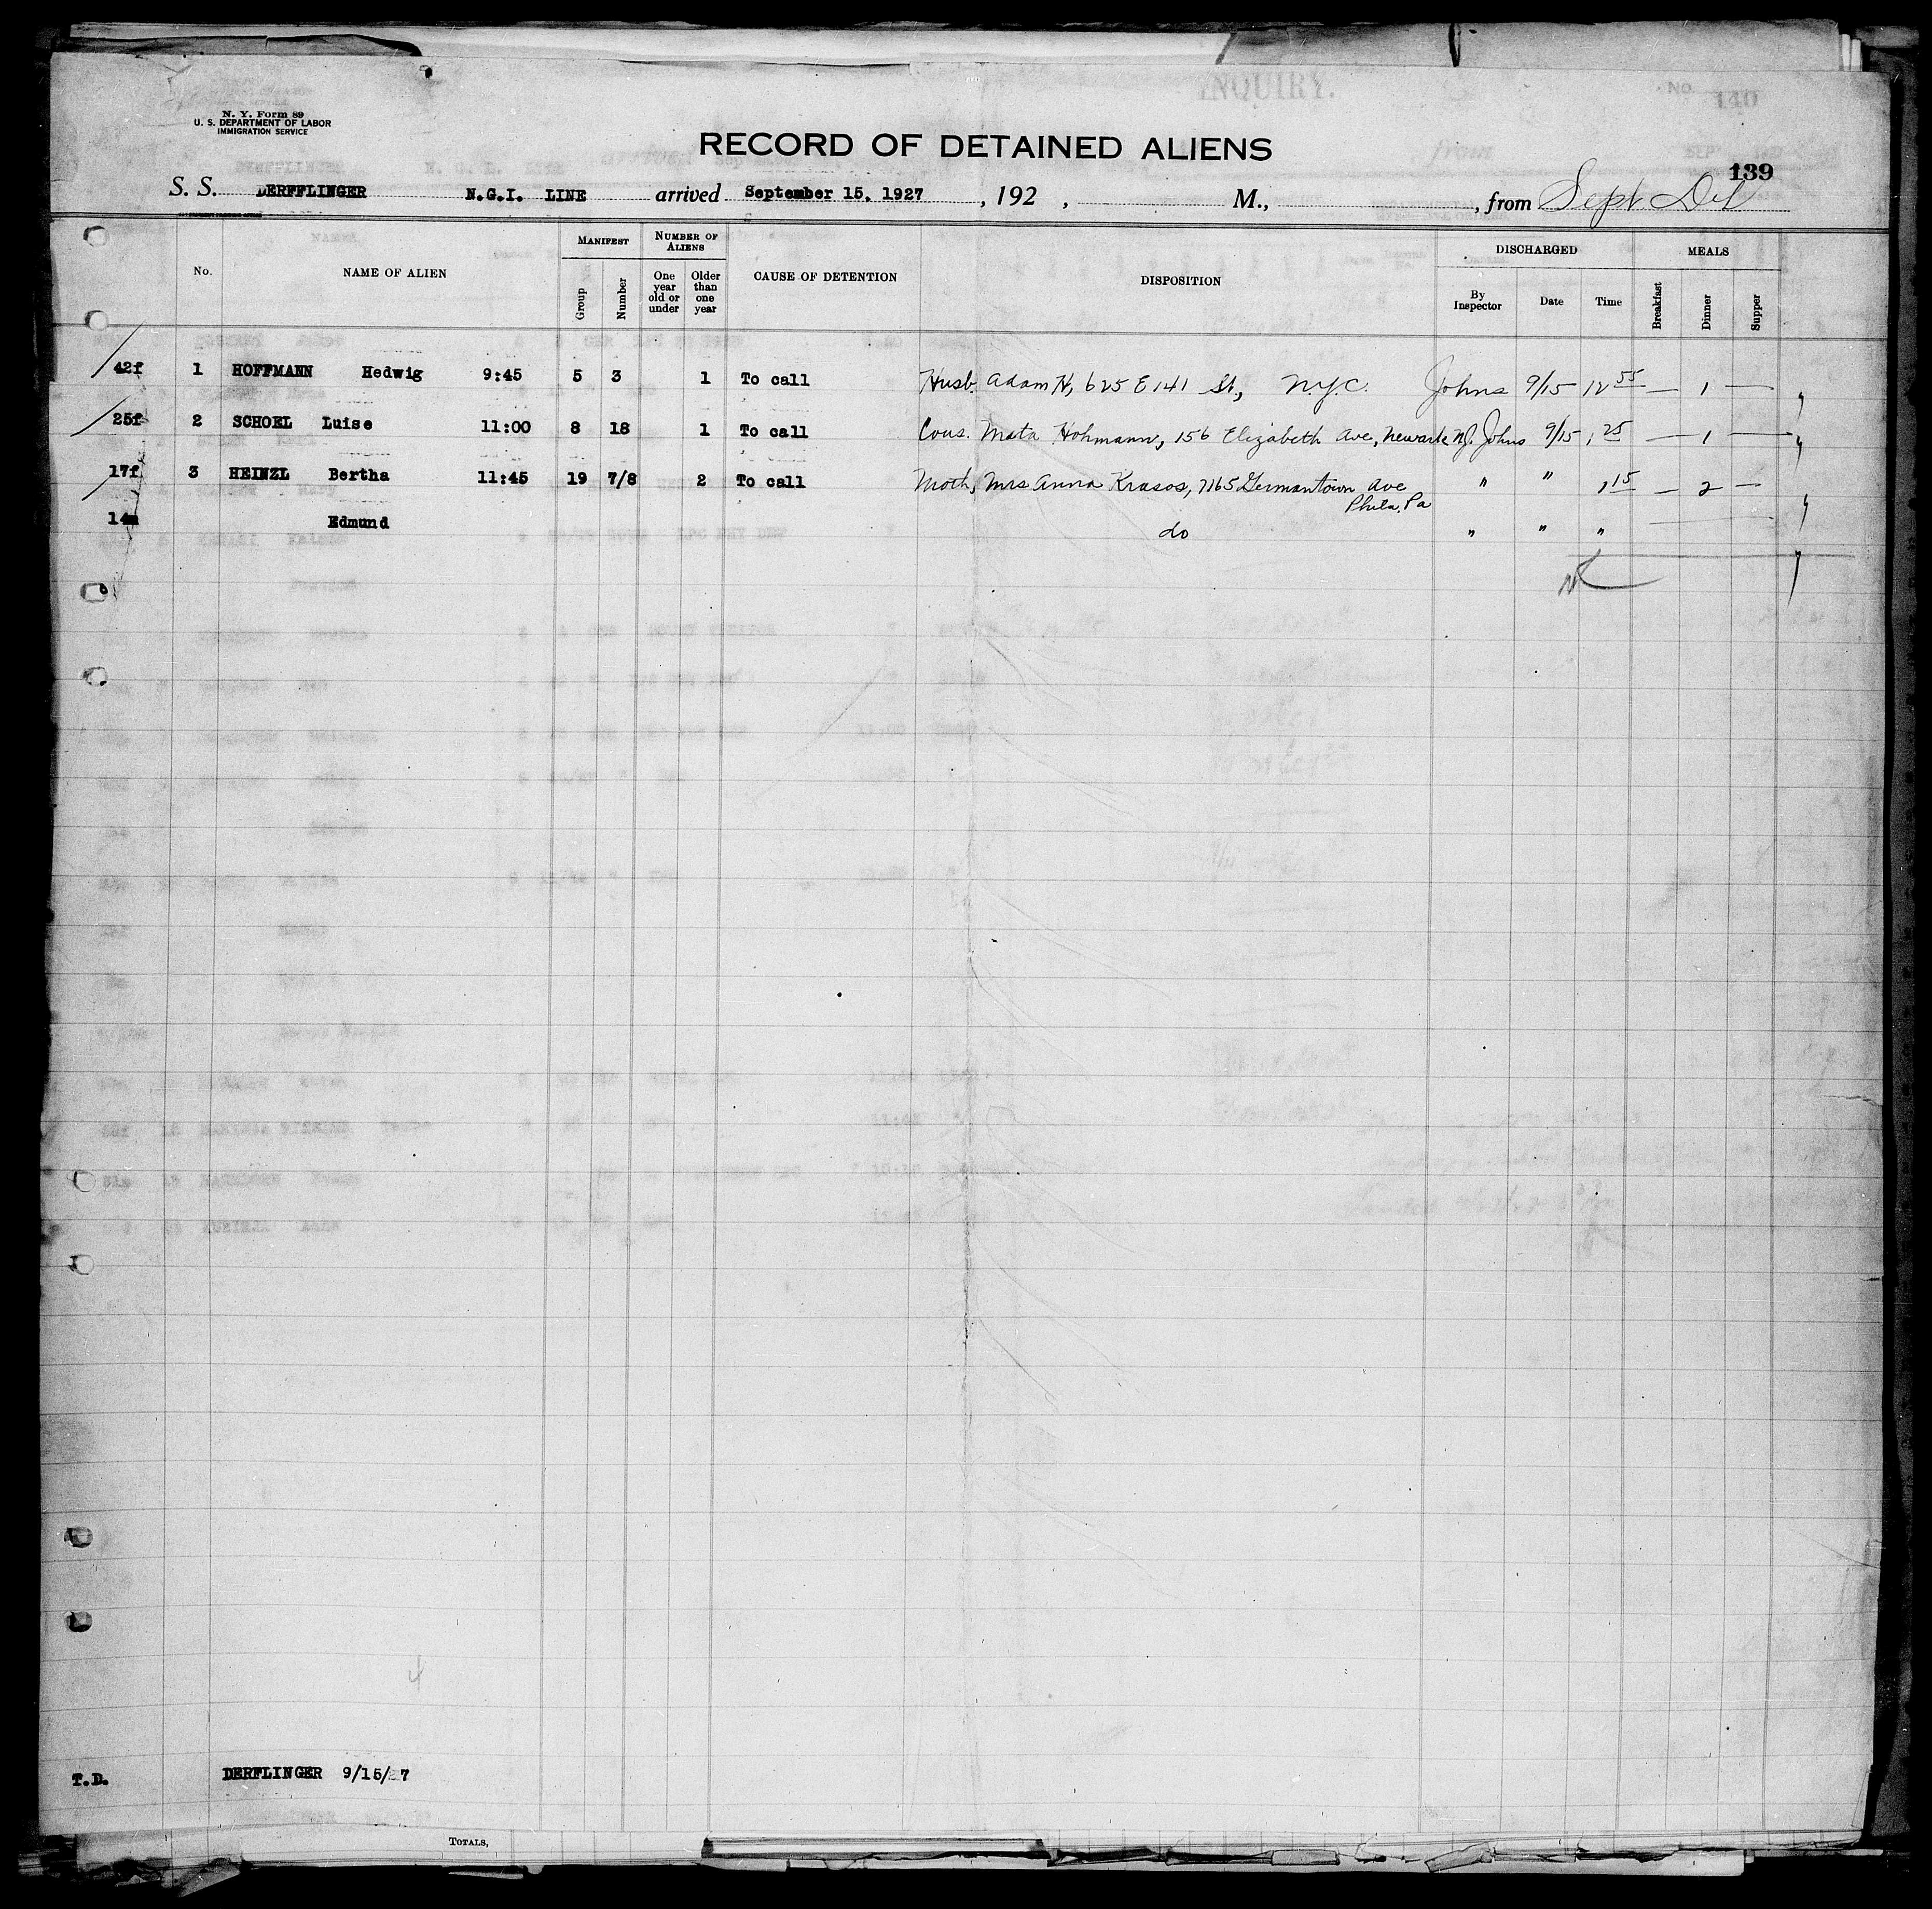 N. Y. Form 89
U. S. DEPARTMENT OF LABOR
IMMIGRATION SERVICE
INQUIRY.
No. 140
RECORD OF DETAINED ALIENS
139
S. S. DERFFLINGER N.G.I. LINE arrived September 15, 1927, 192 , M., , from Sept. Del
No. NAME OF ALIEN MANIFEST Group Number NUMBER OF ALIENS One year old or under Older than one year CAUSE OF DETENTION DISPOSITION DISCHARGED By Inspector Date Time MEALS Breakfast Dinner Supper
42f 1 HOFFMANN Hedwig 9:45 5 3 1 To call Husb. Adam H, 625 E 141 St., N.Y.C. Johns 9/15 12 55 — 1 —
25f 2 SCHOEL Luise 11:00 8 18 1 To call Cous. Meta Hohmann, 156 Elizabeth Ave, Newark NJ. Johns 9/15 1 25 — 1 —
17f 3 HEINZL Bertha 11:45 19 7/8 2 To call Moth, Mrs Anna Krasos, 7165 Germantown Ave " " 1 15 — 2 —
Phila, Pa
14m Edmund do " " "
4
T.D. DERFLINGER 9/15/27
TOTALS,